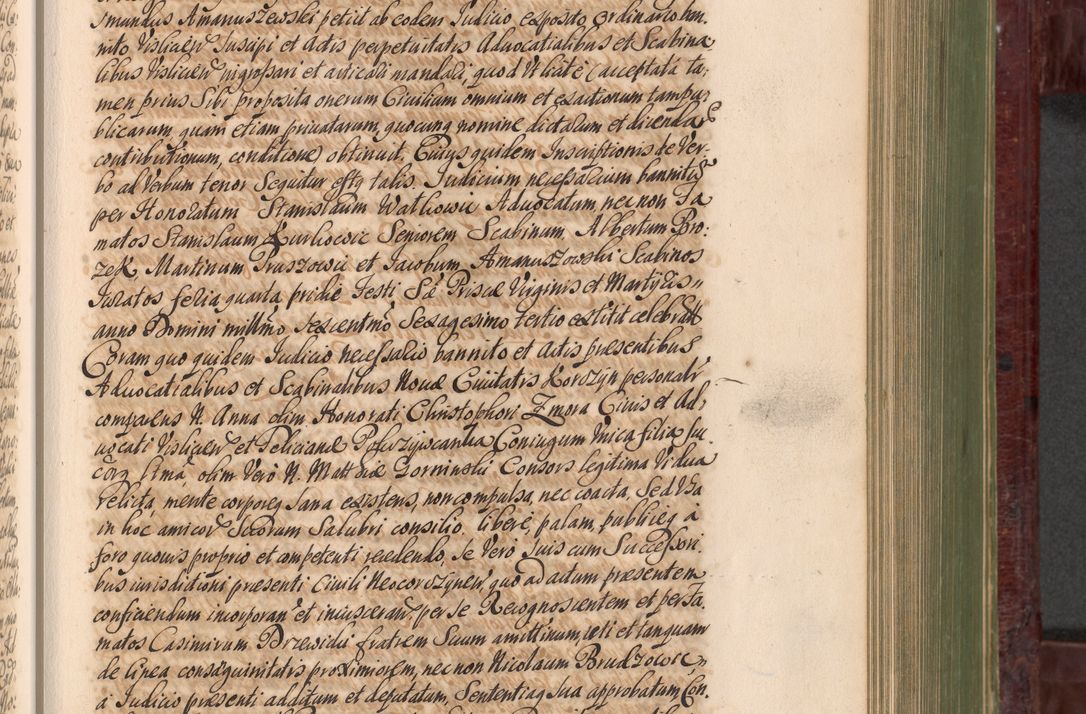 smundus Amanuszewski petiit ab eodem Judicio exposito Ordinario ban,
nito Vislicien Suscipi et Actis perpetuitatis Advocatialibus et Scabina,
libus Vislicien ingrossari et articali mandali, quod Vlicite (acceptata ta,
men prius Sibi proposita onerum Civilium omnium et exactionum tam pu,
blicarum, quàm etiam privatarum, quocunq nomine dictarum et dicendar
contributionum, conditione) obtinuit. Cuius quidem Inscriptionis de Ver,
bo ad Verbum tenor Sequitur estq talis. Judicium necessarium bannitu
per Honoratum Stanislaum Watkowic Advocatum, nec non Fa
matos Stanislaum Kurkowic Seniorem Scabinum, Albertum Bro:
zek, Martinum Pruszowic et Jacobum Amanuszowski Scabinos
Juratos feria quarta pridie Festi Sæ Priscæ Virginis et Martyris,,
anno Domini millmo sexcentmo Sexagesimo tertio extitit celebrat
Coram quo quidem Judicio necessario bannito et Actis præsentibus
Advocatialibus et Scabinalibus Novæ Civitatis Korczyn personalr
comparens N. Anna olim Honorati Christophori Zmora Civis et Ad,
vocati Vislicien et Felicianæ Coniugum Vnica filia su,
olim Vero N. Matthiæ Gorninski Consors legitima Vidua
relicta, mente corporeq Sana existens, non compulsa, nec coacta, Sed Vsa
in hoc amicor Suorum Salubri consilio, liberè, palam, publiceq à
foro quovis proprio et competenti recedendo, Se Verò Suis cum Successori,
bus iurisdictioni præsenti Civili Neocorczynen, quo ad actum præsentem
conficiendum incorporan et inuisceran, per se Recognoscentem et per Fa,
matos Casimirum Brzewicki fratrem Suum amittinum, uti et tanquam
de linea consãguinitatis proximiorem, nec non Nicolaum Brudzowic,,
à Judicio præsenti additum et deputatum, Sententiaq Sua approbatum, Con.